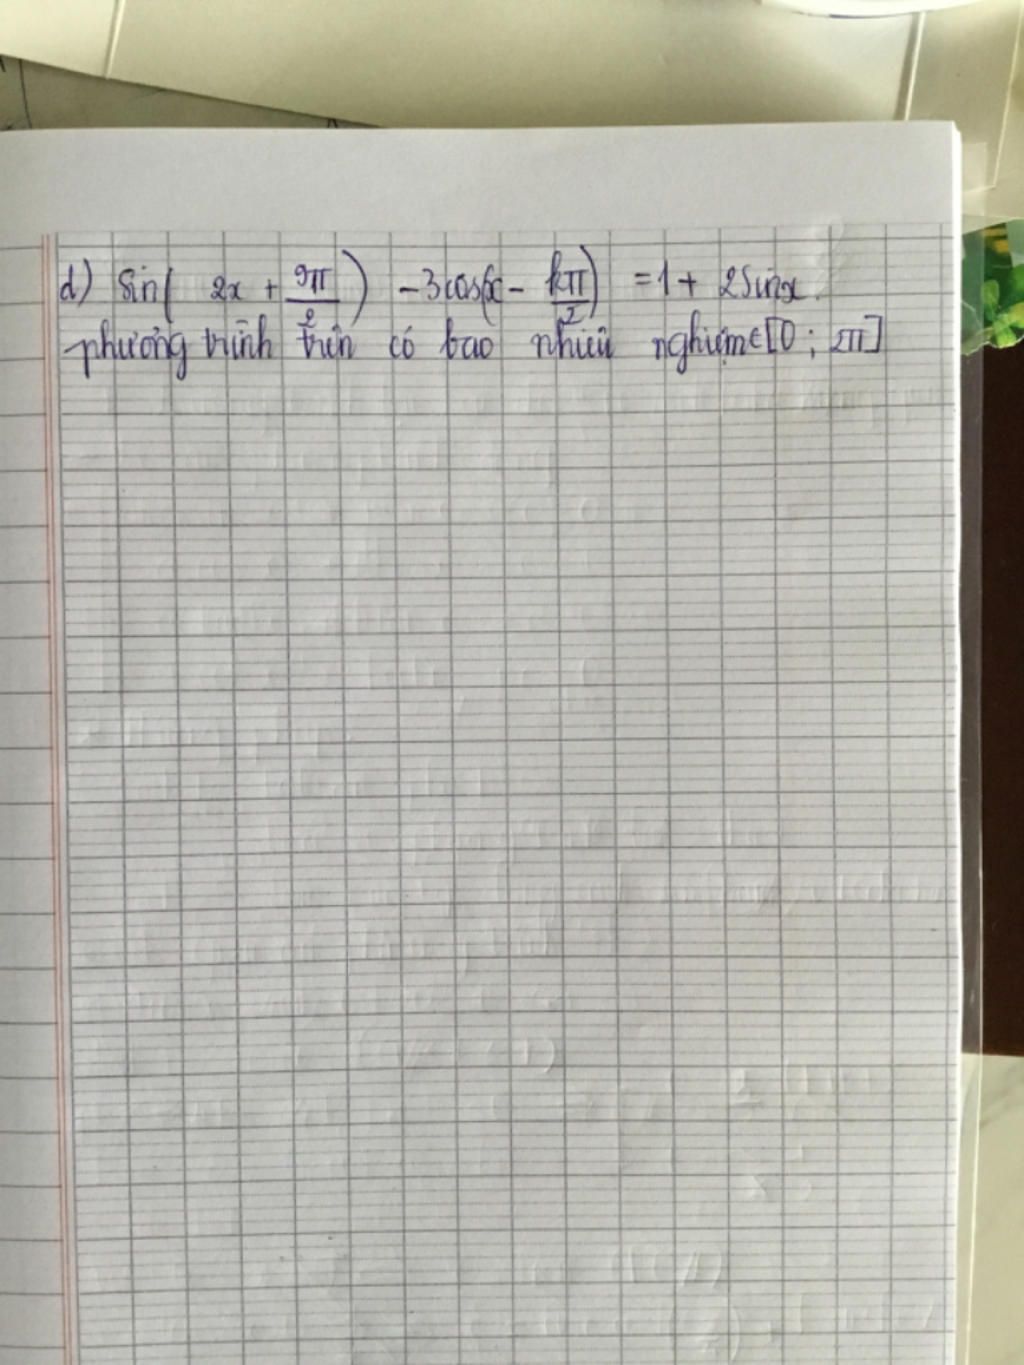 d) sin( 2x + 9π/2 ) - 3cos(x - kπ/2) = 1 + 2sinx.
phương trình trên có bao nhiêu nghiệm ∈ [0 ; 2π]